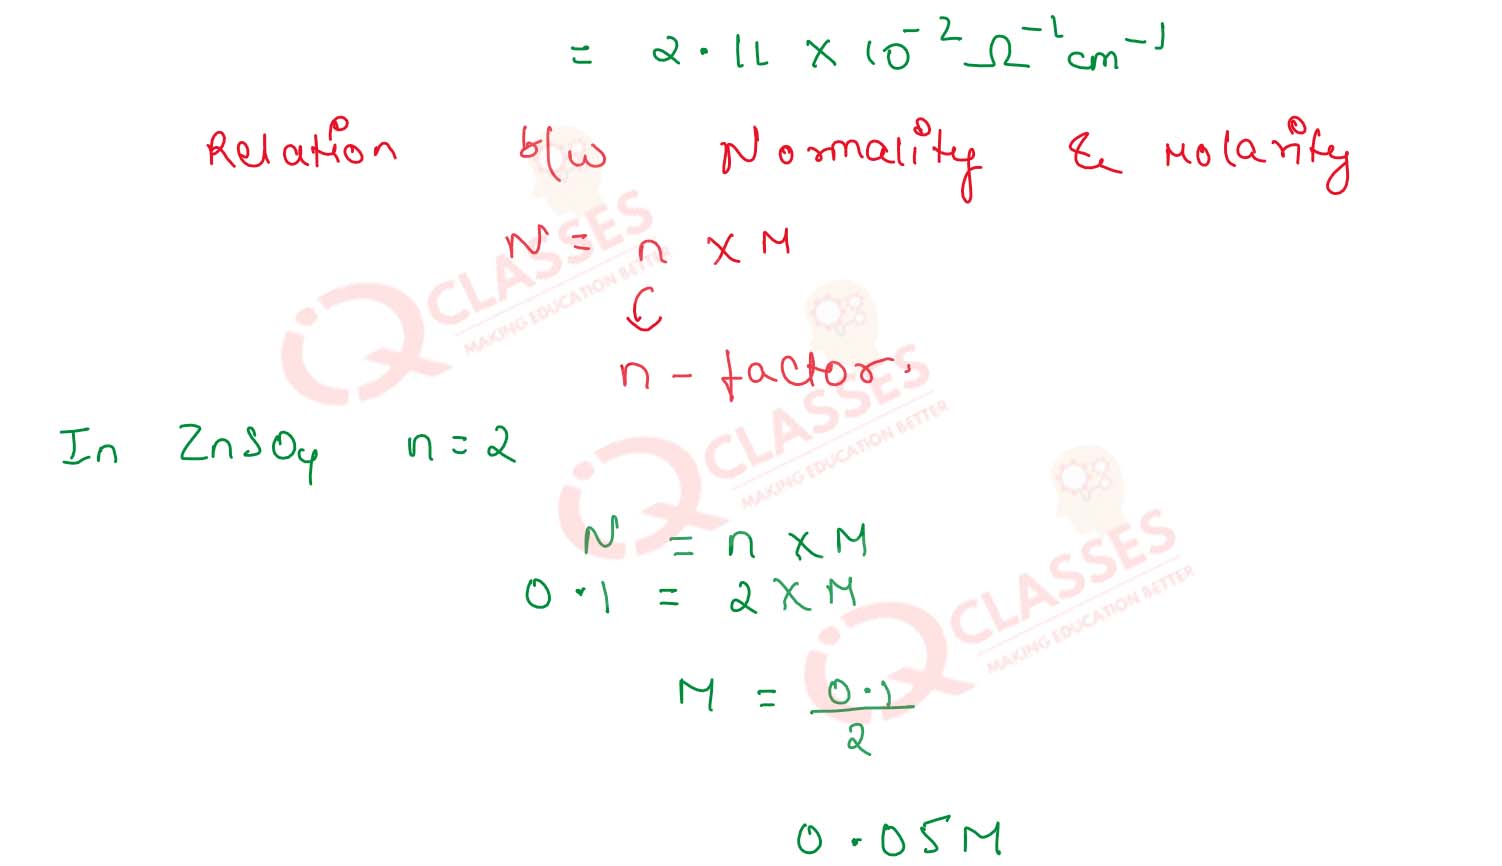 = 2.11 × 10⁻² Ω⁻¹ cm⁻¹
Relation b/w Normality & Molarity
N = n × M
n - factor.
In ZnSO₄ n = 2
N = n × M
0.1 = 2 × M
M = 0.1
2
0.05 M
iQ CLASSES
MAKING EDUCATION BETTER
iQ CLASSES
MAKING EDUCATION BETTER
iQ CLASSES
MAKING EDUCATION BETTER